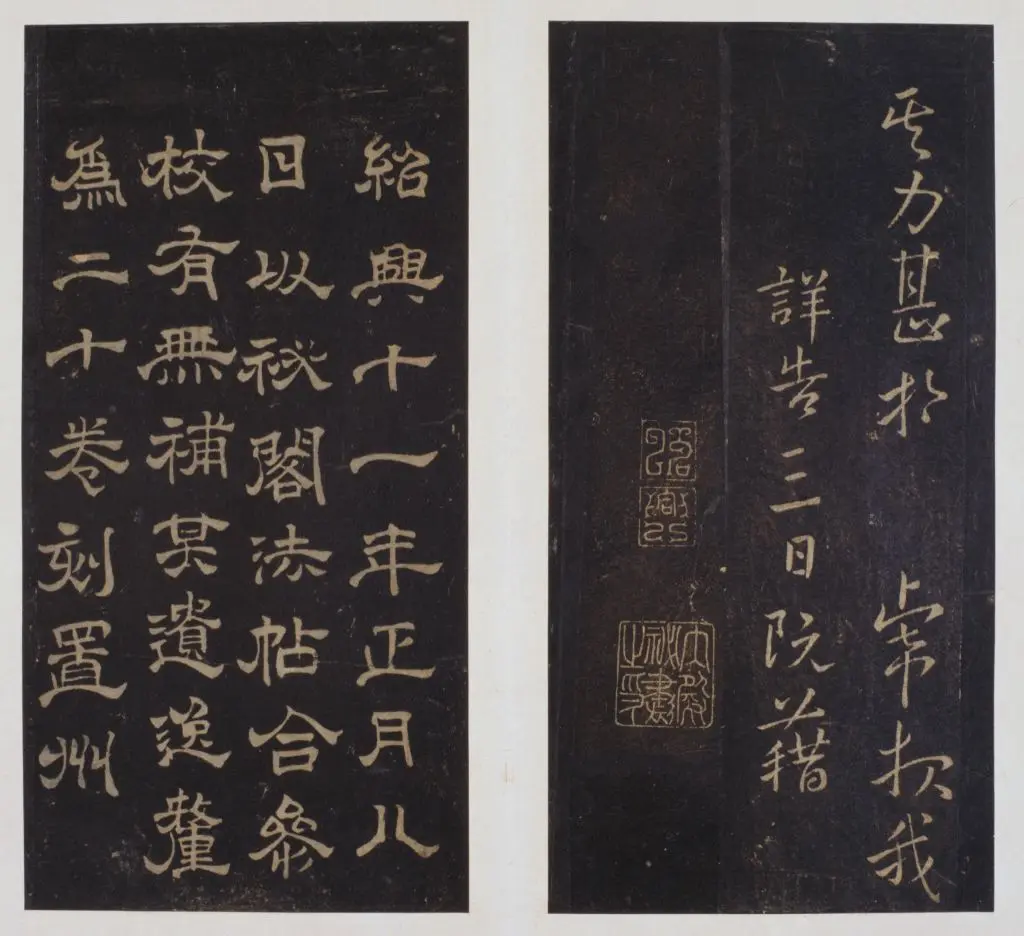 力甚於常我
詳告三日阮籍
紹興
紹興十一年正月八
日以祕閣法帖合參
校有無補其遺逸釐
爲二十卷刻置州